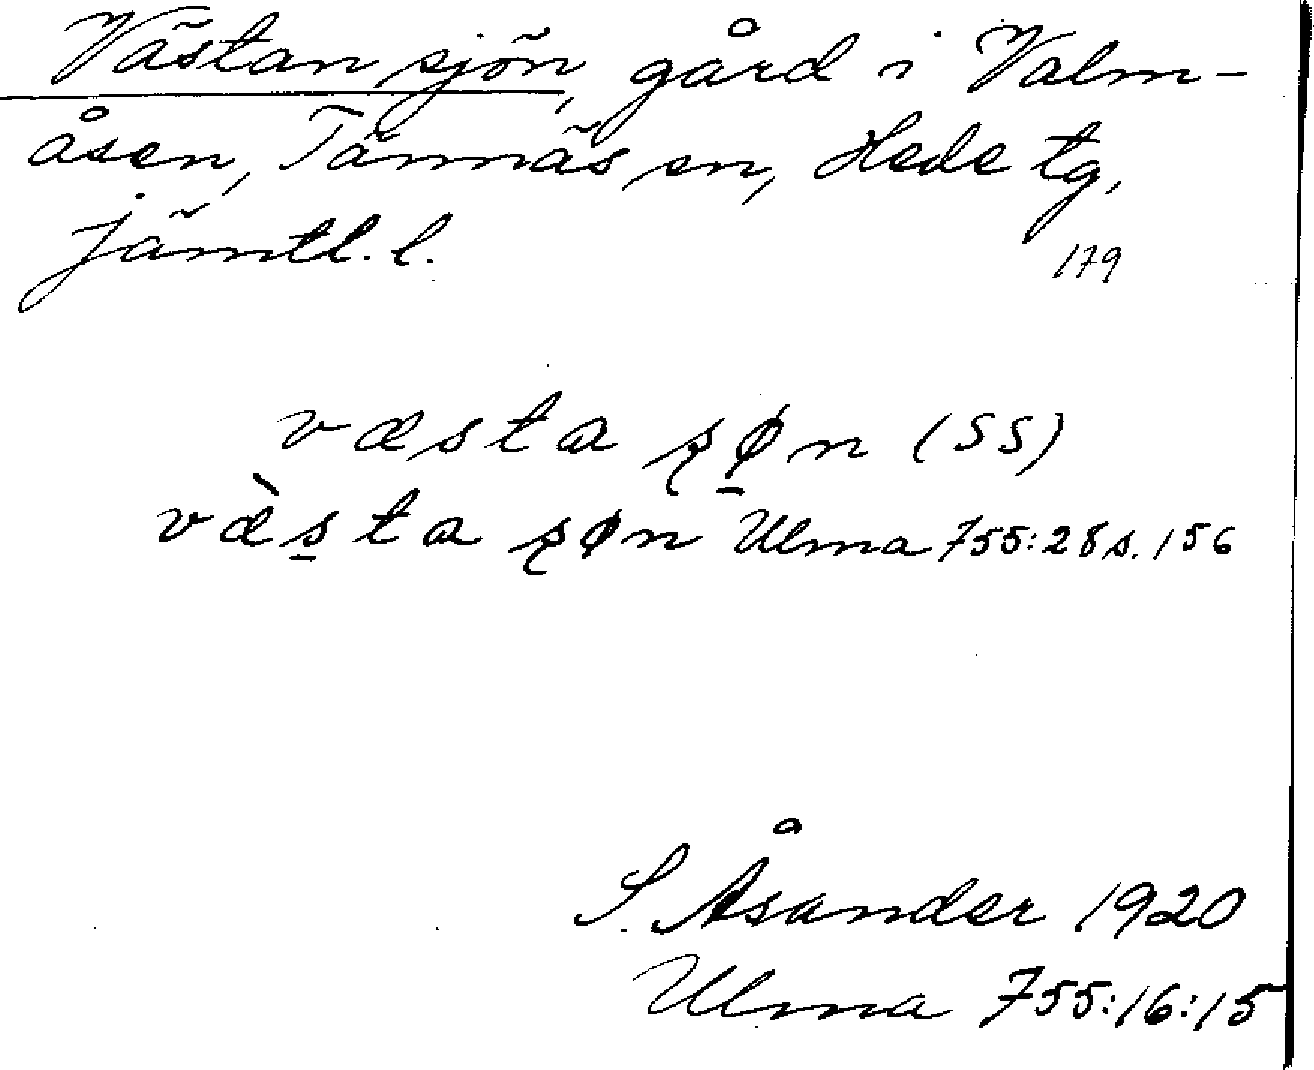 Västan sjön, gård i Valm-
åsen, Tännäs sn, Hede tg,
Jämtl. l.
179
væsta ʂø̱n (SS)
væ̀s̱ta ʂøn Ulma 755:28 s. 156
S. Åsander 1920
Ulma 755:16:15